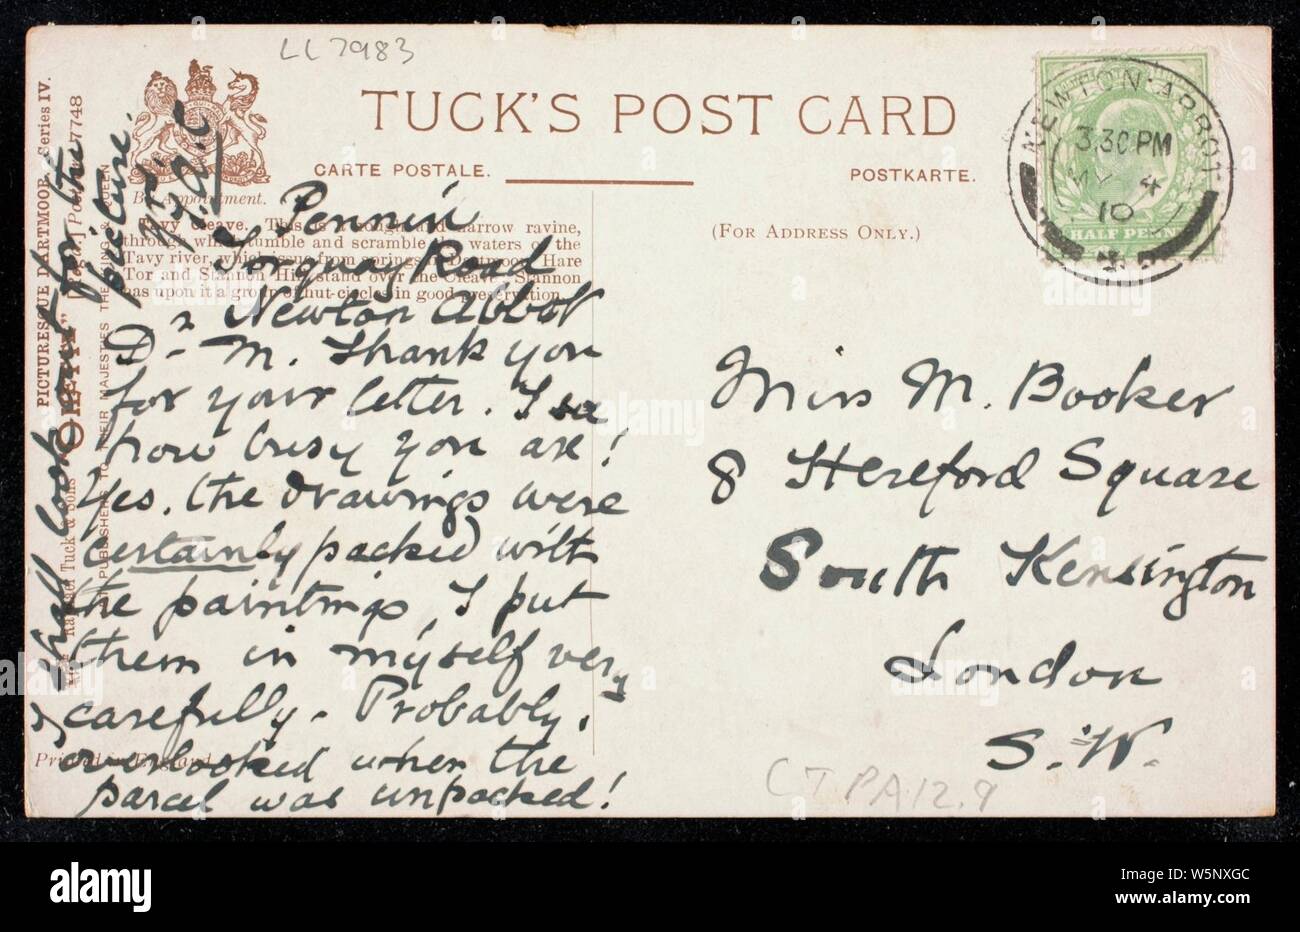 LL 7983
TUCK'S POST CARD
CARTE POSTALE. POSTKARTE.
By Appointment.
(FOR ADDRESS ONLY.)
Tavy Cleave. This is a narrow ravine,
through which tumble and scramble the waters of the
Tavy river, which issue from springs Dartmoor. Hare
Tor and Stannon Hill stand over the Cleave. Stannon
has upon it a group of hut-circles in good preservation.
Pennin
Torquay Road
Newton Abbot
Dr M. Thank you
for your letter. I see
how busy you are!
Yes, the drawings were
certainly packed with
the paintings I put
them in myself very
carefully. Probably,
overlooked when the
parcel was unpacked!
shall look out for the
picture.
Miss M. Booker
8 Hereford Square
South Kensington
London
S.W.
NEWTON ABBOT
3.30 PM
MY 4
10
HALF PENNY
PICTURESQUE DARTMOOR Series IV.
"OILETTE" 7748
Raphael Tuck & Sons
PUBLISHERS TO THEIR MAJESTIES THE KING & QUEEN
Printed in England.
CTPA12.9
alamy
Image ID: W5NXGC
www.alamy.com